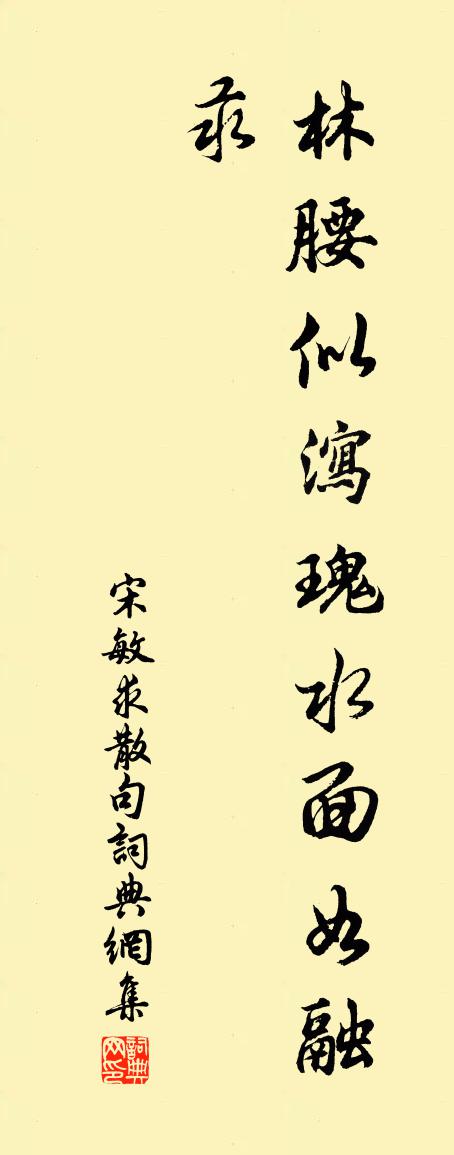 林腰似瀉瑰水面如融
汞
宋敏求散句詞典網集
詞典
网印